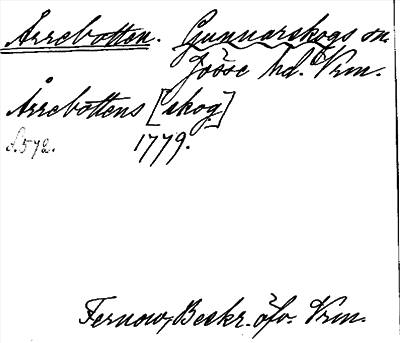 Årrebotten. Gunnarskogs sn.
Jösse hd. Vrm.
Årrebottens [skog]
s. 572. 1779.
Fernow, Beskr. öfv. Vrm.